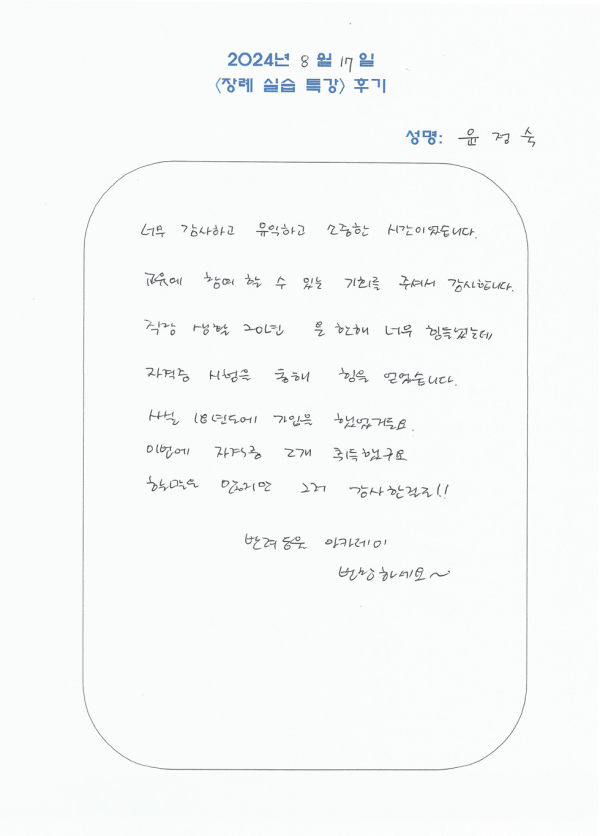 2024년 8 월 17 일
<장례 실습 특강> 후기
성명: 윤 정 숙
너무 감사하고 유익하고 소중한 시간이었습니다.
교육에 참여 할 수 있는 기회를 주셔서 감사합니다.
직장 생활 20년 올 한해 너무 힘들었는데
자격증 시험을 통해 힘을 얻었습니다.
사실 18년도에 가입을 했었거든요.
이번에 자격증 2개 취득했구요
할말은 많지만 그저 감사한걸로!!
반려동물 아카데미
번창하세요~